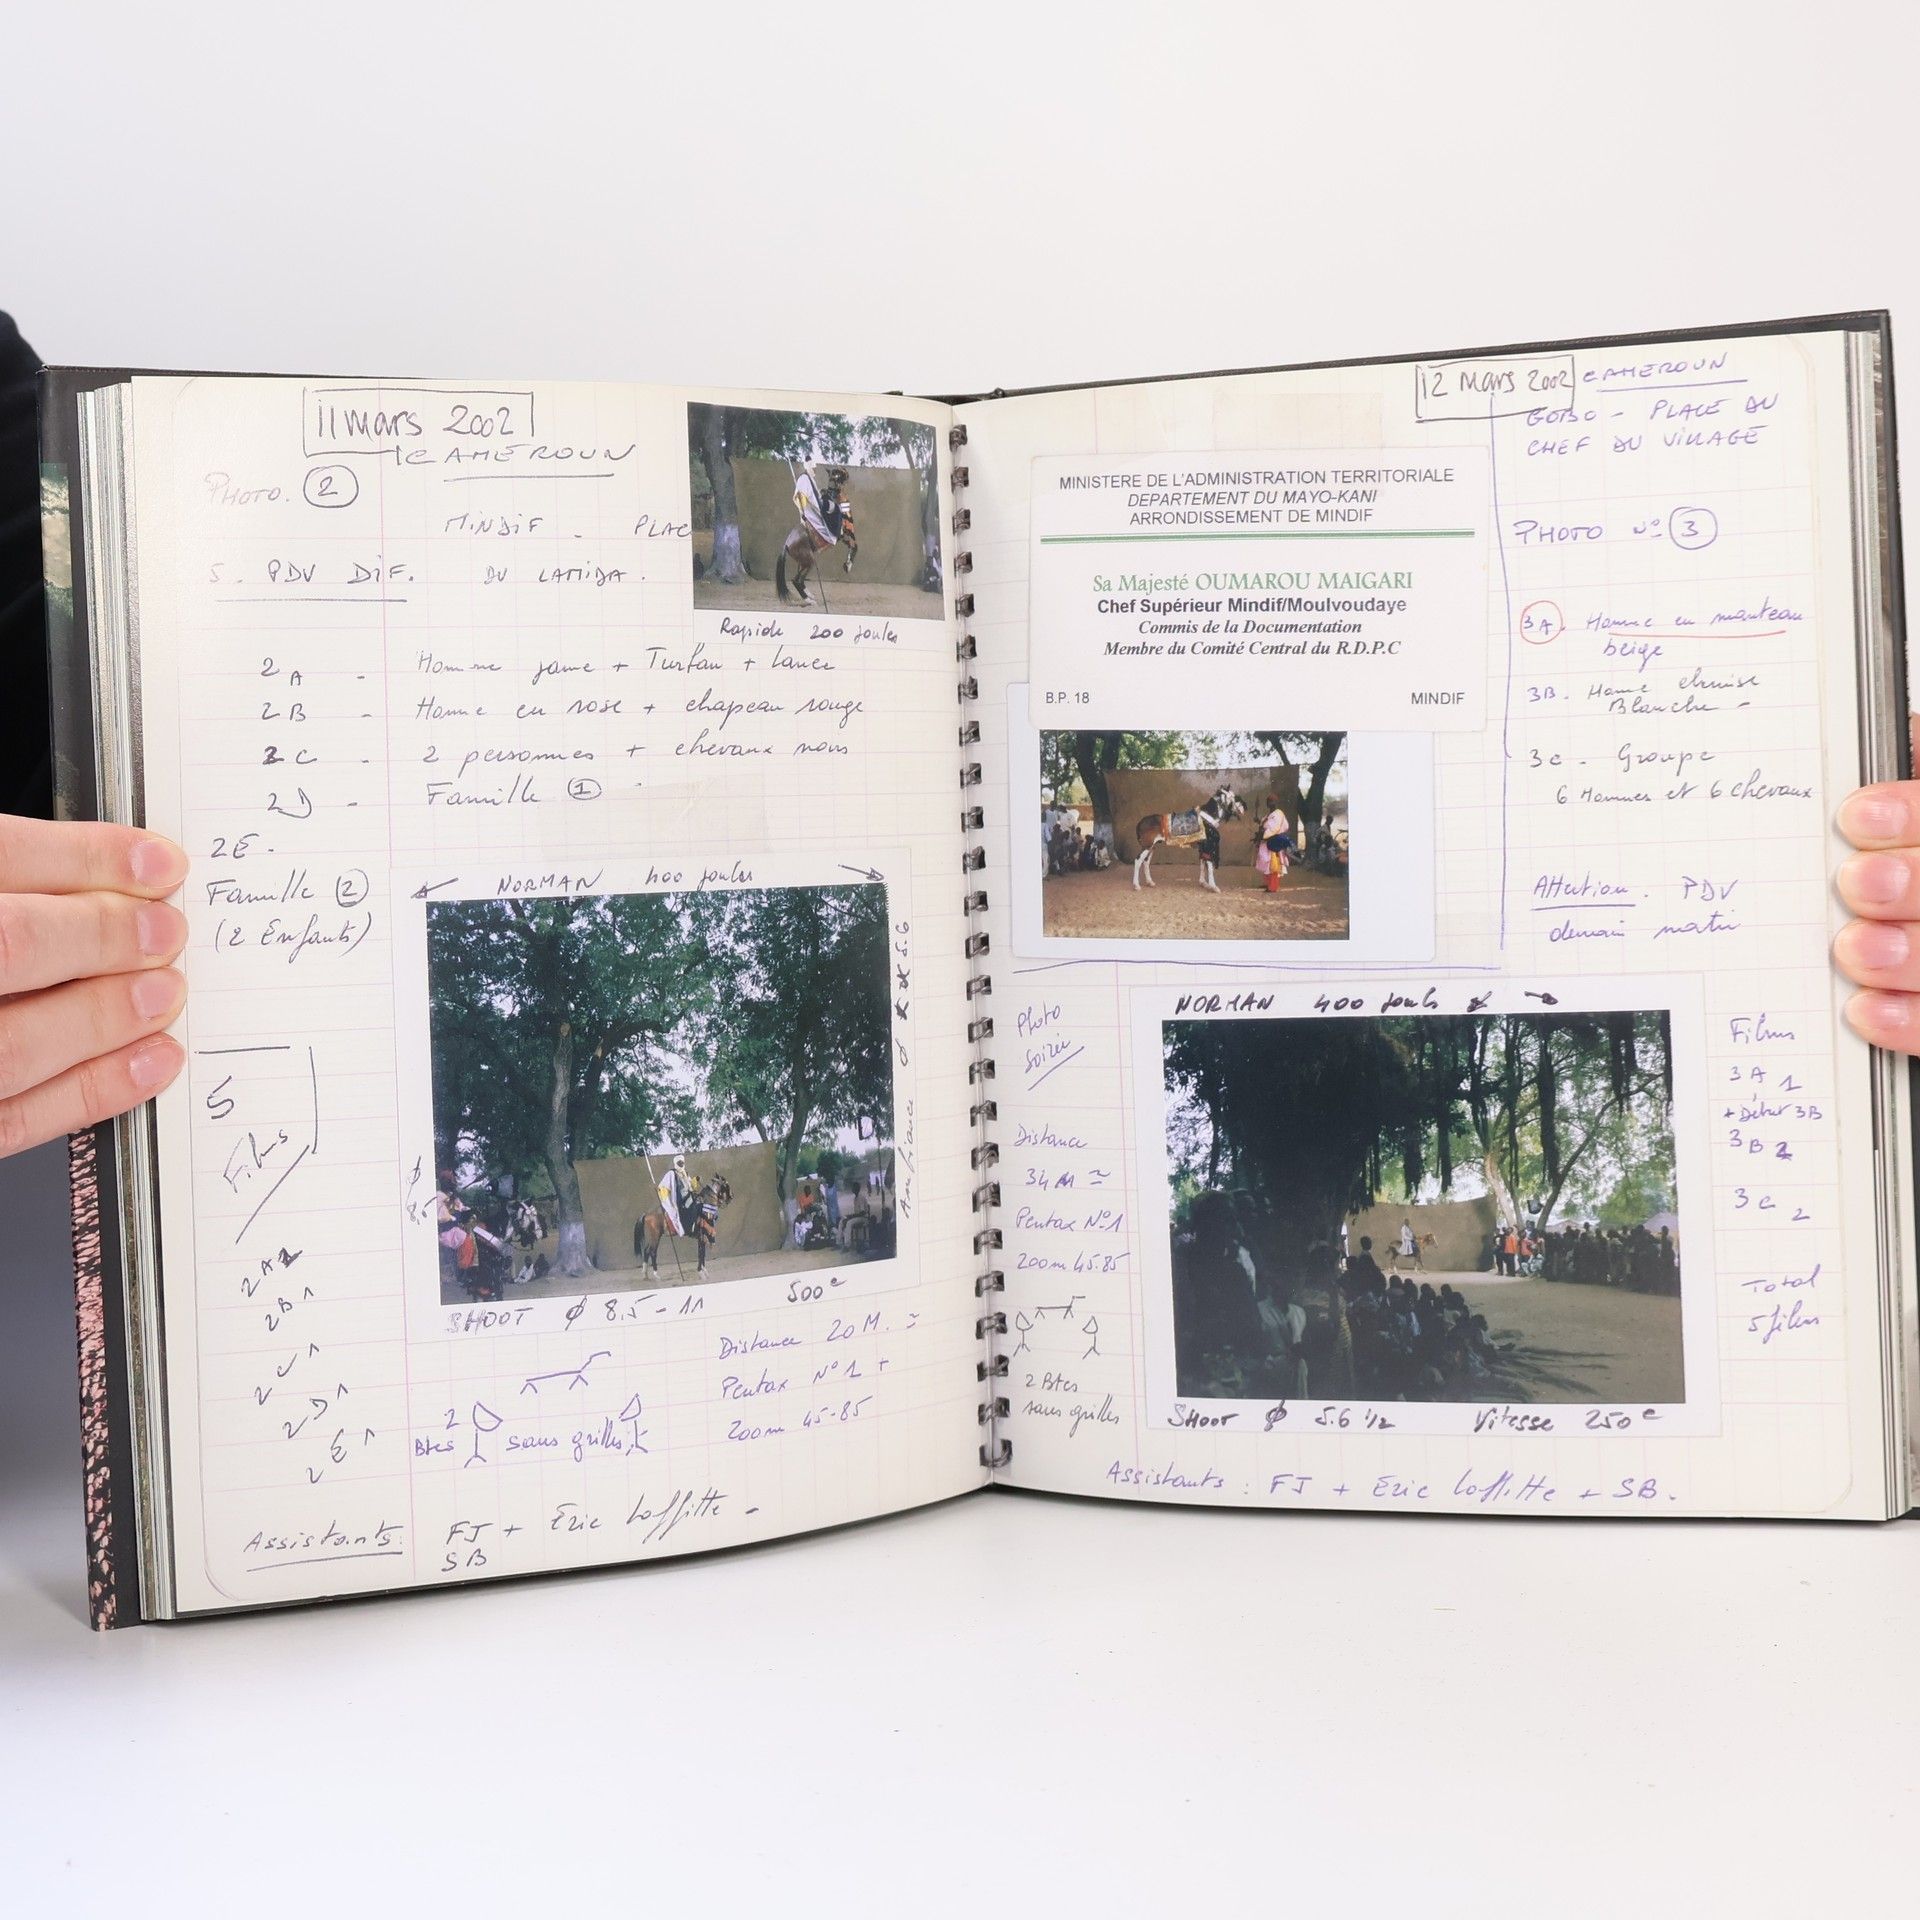 11 mars 2002
CAMEROUN
PHOTO. 2
MINDIF - PLAC
5. PDV DIF. DU LAMIDA.
Rapide 200 joules
2A - Homme jaune + Turban + lance
2B - Homme en rose + chapeau rouge
2C - 2 personnes + chevaux noirs
2D - Famille 1
2E.
Famille 2
(2 Enfants)
NORMAN 400 joules
5.6
Ambiance
8.5
5
Films
2A
2B 1
2C 1
2D 1
2E 1
SHOOT ϕ 8.5 - 11 500e
Distance 20 M. ≃
Pentax N° 1 +
zoom 45-85
2
Btes sans grilles
Assistants: FJ + Eric Laffitte -
SB
12 mars 2002 CAMEROUN
GOBO - PLACE DU
CHEF DU VILLAGE
MINISTERE DE L'ADMINISTRATION TERRITORIALE
DEPARTEMENT DU MAYO-KANI
ARRONDISSEMENT DE MINDIF
Sa Majesté OUMAROU MAIGARI
Chef Supérieur Mindif/Moulvoudaye
Commis de la Documentation
Membre du Comité Central du R.D.P.C
B.P. 18 MINDIF
PHOTO N° 3
3A. Homme en manteau
beige
3B. Homme chemise
Blanche -
3C - Groupe
6 Hommes et 6 chevaux
Attention. PDV
demain matin
Photo
Soirée
NORMAN 400 joules
Distance
34 M ≃
Pentax N°1
zoom 45.85
2 Btes
sans grilles
Films
3A 1
+ Début 3B
3B 2
3C 2
Total
5 films
SHOOT ϕ 5.6 1/2 Vitesse 250e
Assistants : FJ + Eric Laffitte + SB.